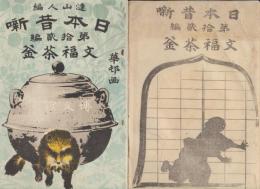 漣山人編
日本昔噺
第拾貳編
文福茶釜
華邨画
日本昔噺
第拾貳編
文福茶釜